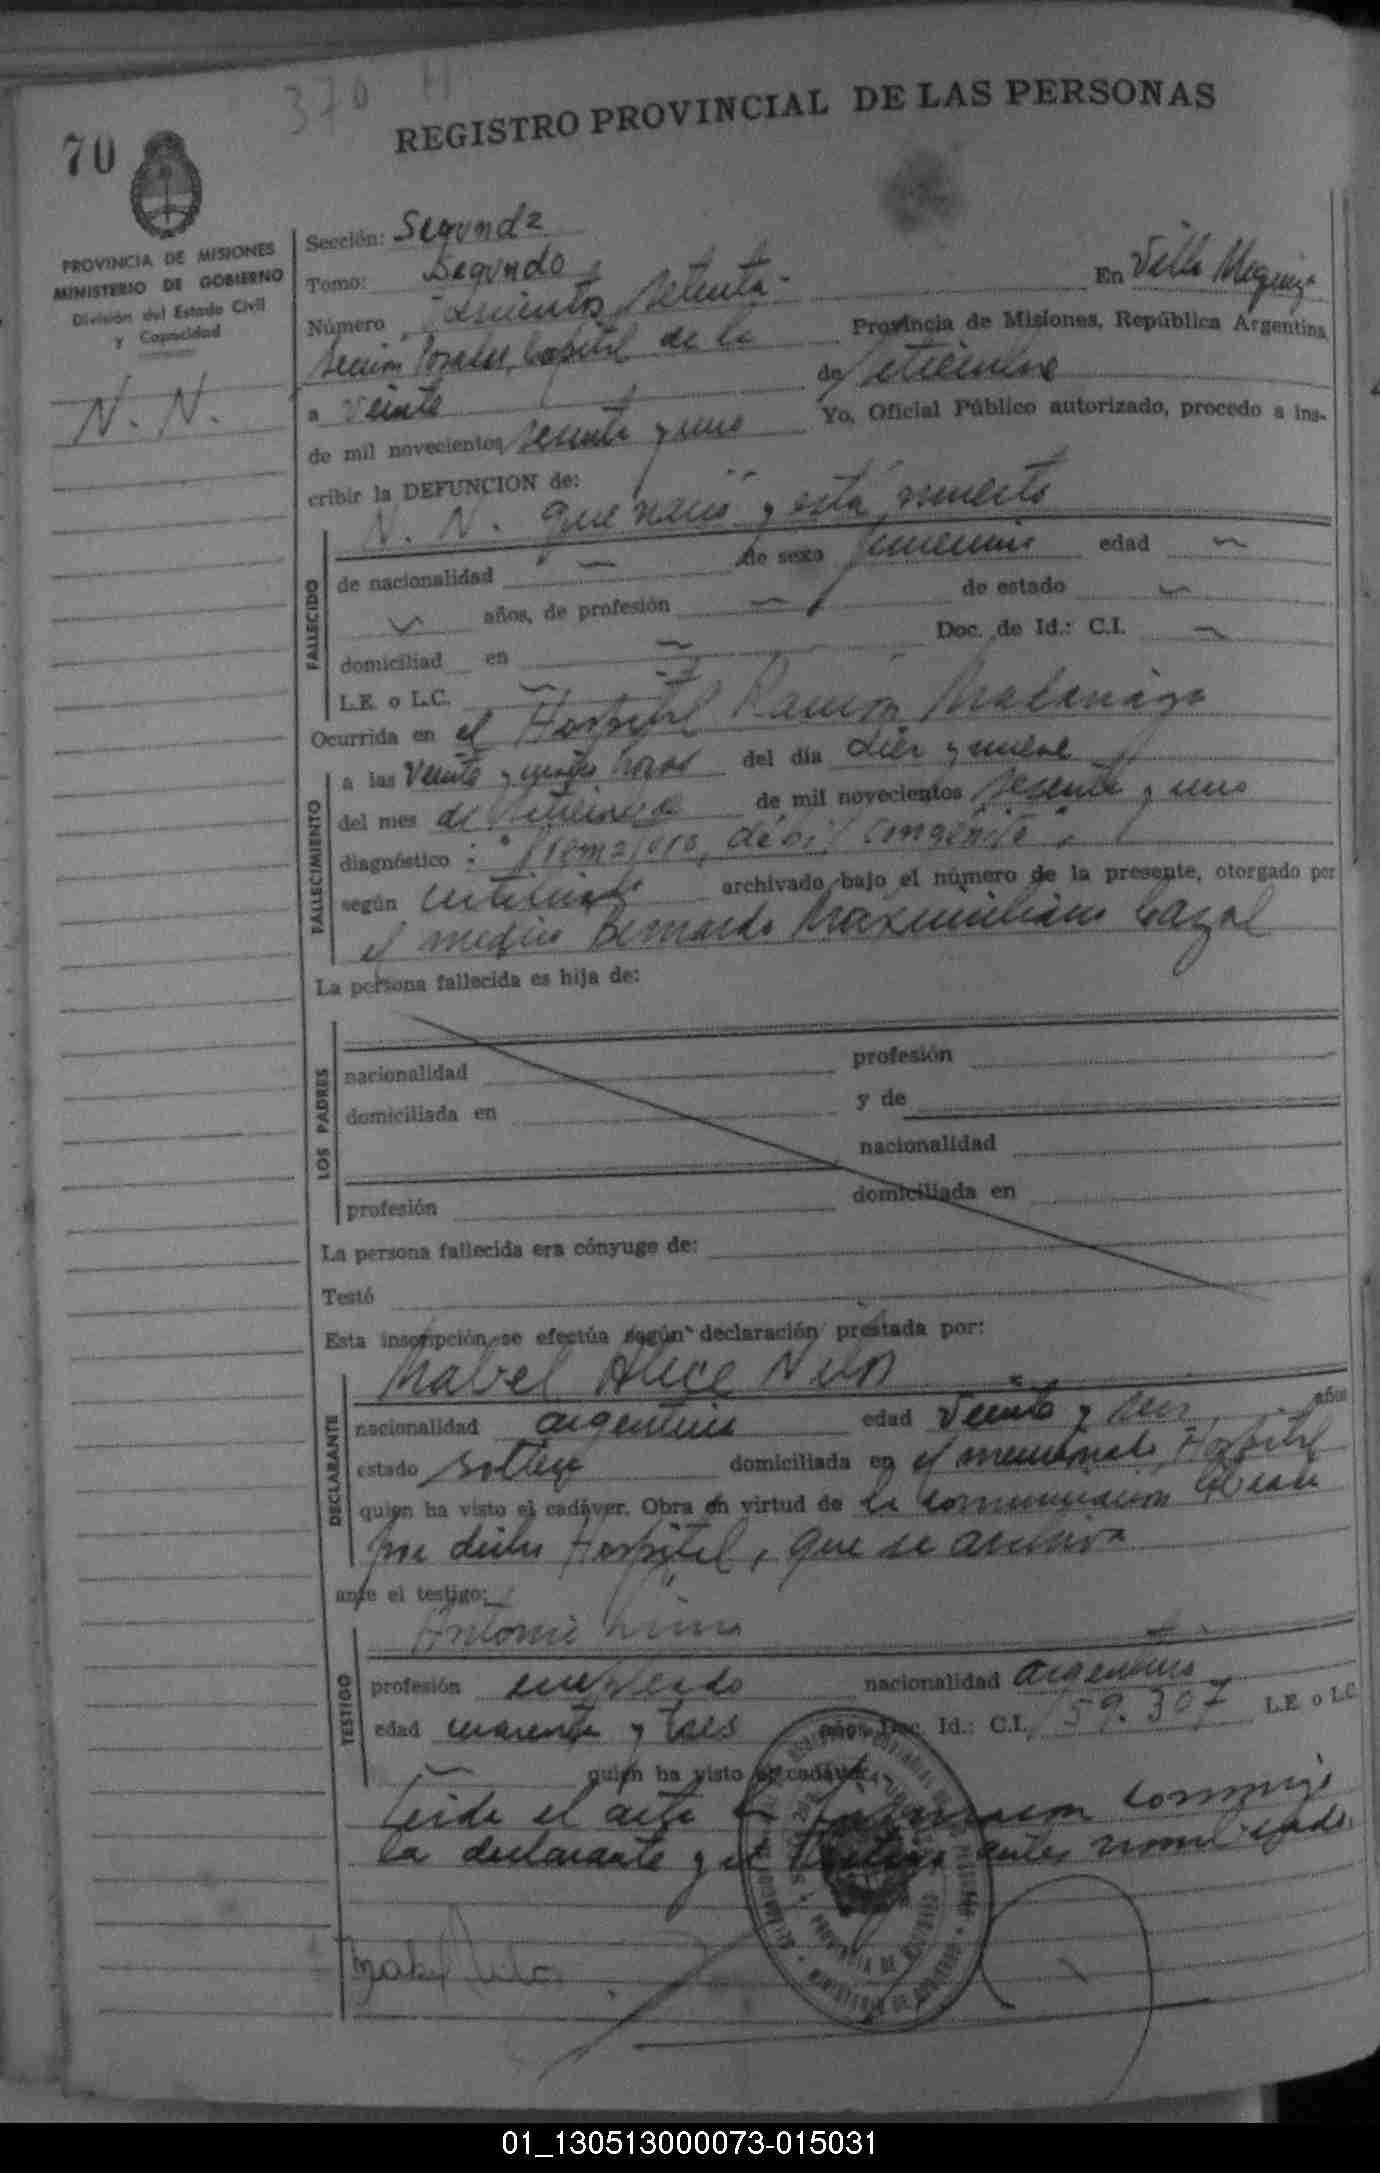 370 H
70
REGISTRO PROVINCIAL DE LAS PERSONAS
PROVINCIA DE MISIONES
MINISTERIO DE GOBIERNO
División del Estado Civil
y Capacidad
N. N.
Sección: Segunda
Tomo: Segundo
Número setenta.- En Villa
Sección Posadas, Capital de la Provincia de Misiones, República Argentina
a veinte de setiembre
de mil novecientos sesenta y uno Yo, Oficial Público autorizado, procedo a ins-
cribir la DEFUNCION de:
N. N. que nació y está muerta
FALLECIDO
de nacionalidad — de sexo femenino edad —
años, de profesión — de estado —
domiciliad en — Doc. de Id.: C.I. —
L.E. o L.C. —
Ocurrida en el Hospital Ramón Madariaga
FALLECIMIENTO
a las veinte y horas del día diez y nueve
del mes de setiembre de mil novecientos sesenta y uno
diagnóstico : "Prematuro, débil congénito".
según certificado archivado bajo el número de la presente, otorgado por
el médico Bernardo Maximiliano Cazal
La persona fallecida es hija de:
LOS PADRES
nacionalidad profesión
domiciliada en y de
nacionalidad
profesión domiciliada en
La persona fallecida era cónyuge de:
Testó
Esta inscripción se efectúa según declaración prestada por:
Mabel Alice
DECLARANTE
nacionalidad argentina edad veinte y seis años
estado soltera domiciliada en el mencionado Hospital
quien ha visto el cadáver. Obra en virtud de la comunicación
por dicho Hospital, que se archiva
ante el testigo:
Antonio
TESTIGO
profesión empleado nacionalidad argentino
edad cuarenta y tres años Doc. Id.: C.I. 159.307 L.E. o L.C.
— quien ha visto el cadáver
Leída el acta la conmigo
la declarante y el testigo antes nombrado.
PROVINCIA DE MISIONES
MINISTERIO DE GOBIERNO
Mabel
01_130513000073-015031